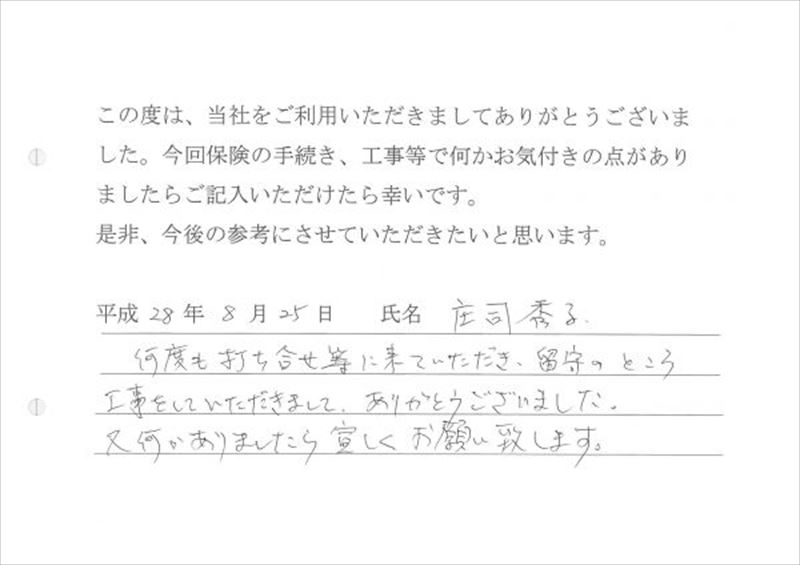 この度は、当社をご利用いただきましてありがとうございま
した。今回保険の手続き、工事等で何かお気付きの点があり
ましたらご記入いただけたら幸いです。
是非、今後の参考にさせていただきたいと思います。
平成 28 年 8 月 25 日 氏名 庄司秀子.
何度も打ち合せ等に来ていただき、留守のところ
工事をしていただきまして、ありがとうございました。
又何かありましたら宜しくお願い致します。